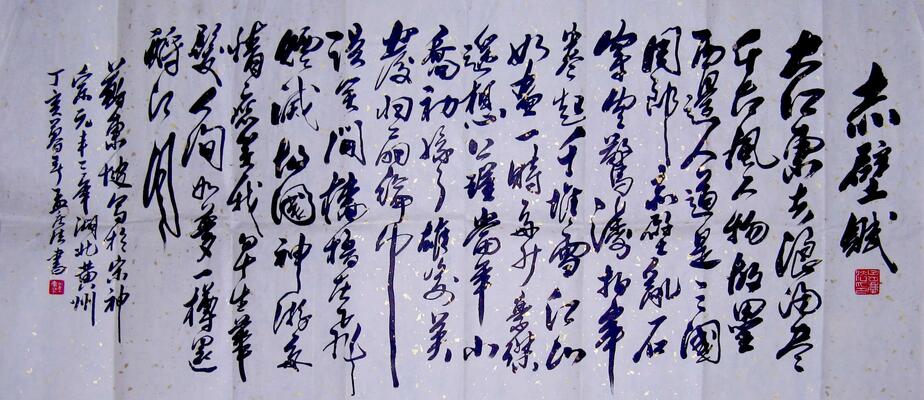 赤壁賦
大江東去浪淘尽
千古風人物故壘
西邊人道是三國
周郎赤壁亂石
穿空驚濤拍岸
卷起千堆雪江山
如畫一時多少豪傑
遥想公瑾當年小
喬初嫁了雄姿英
發羽扇綸巾
談笑間檣櫓灰飛
煙滅故國神游多
情應笑我早生華
髮人间如夢一樽還
酹江月
蘇東坡寫於宋神
宗元丰三年湖北黄州
丁亥書